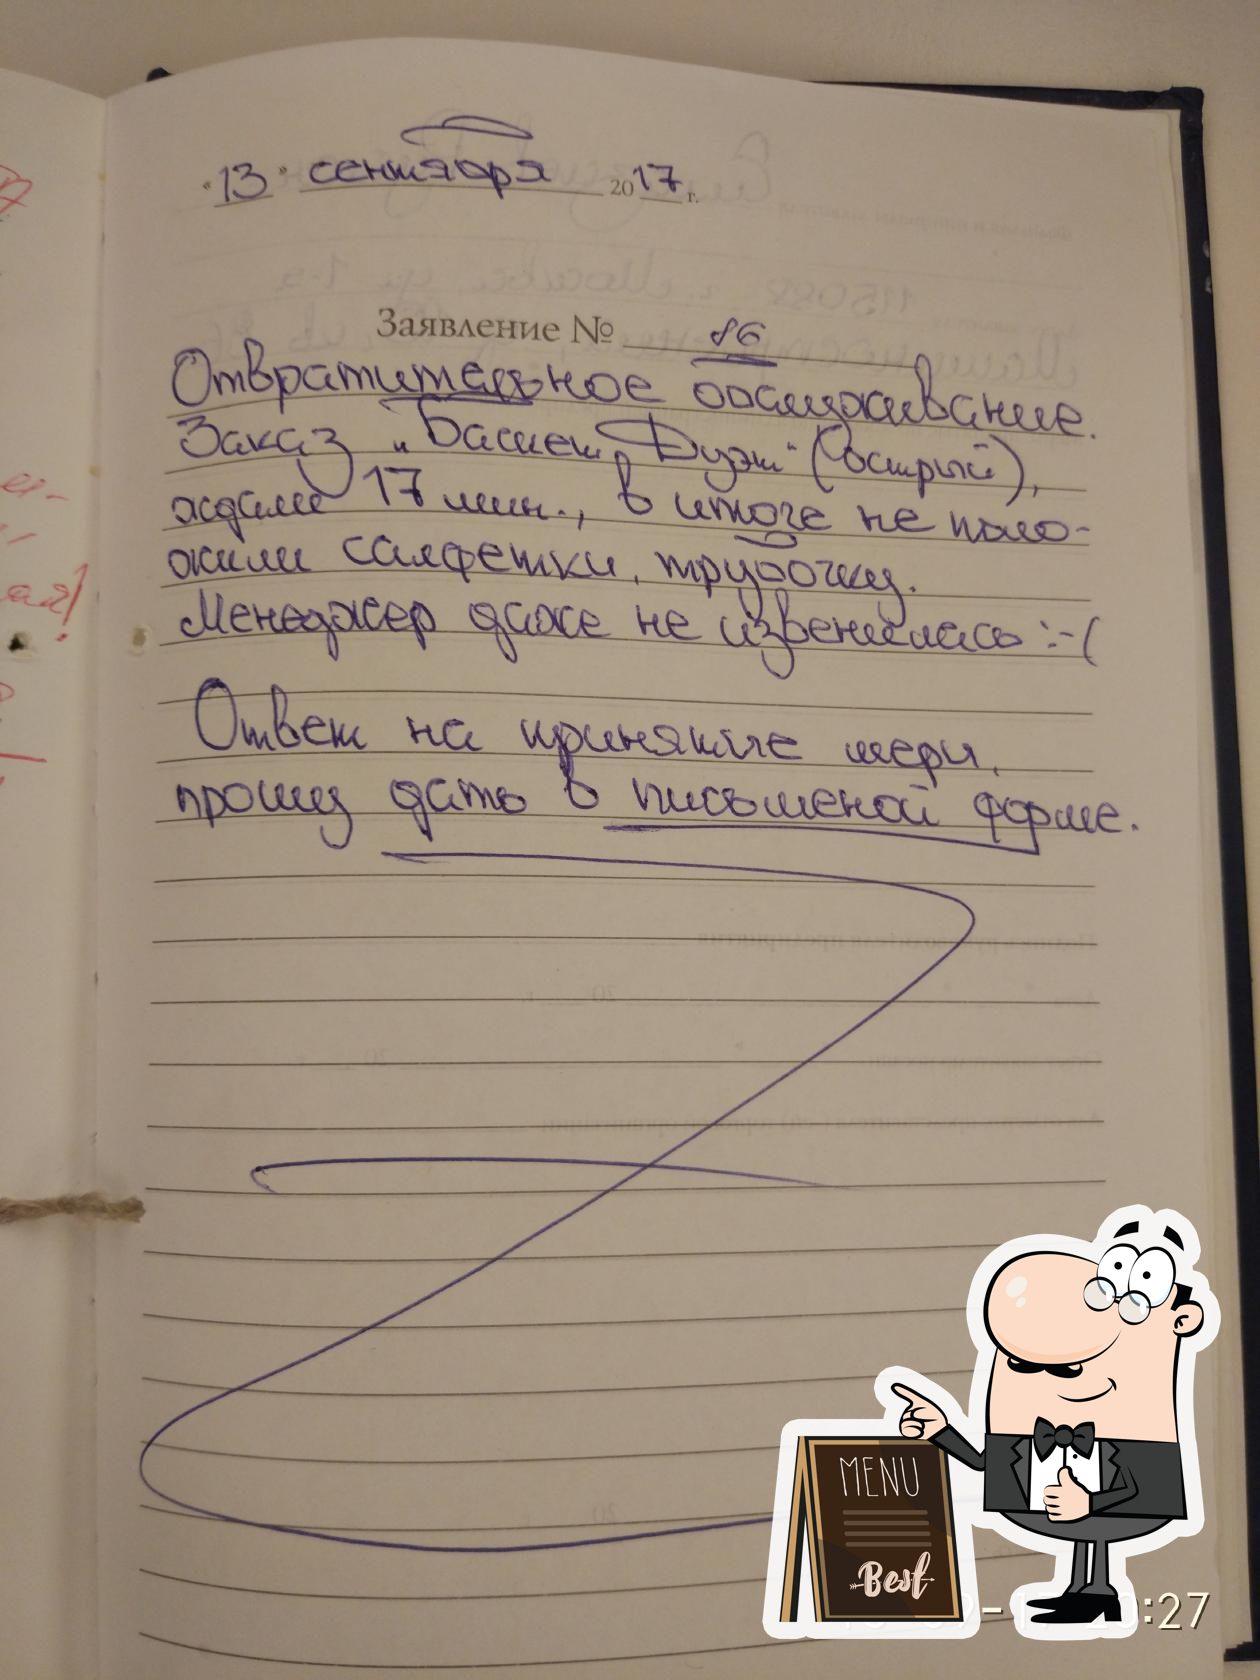 "13" сентября 2017 г.
Заявление № 86
Отвратительное обслуживание.
Заказ "Баскет Дуэт" (острый),
ждали 17 мин., в итоге не поло-
жили салфетки, трубочку.
Менеджер даже не извенилась :-(
Ответ на принятые меры,
прошу дать в письменой форме.
MENU
Best
20:27